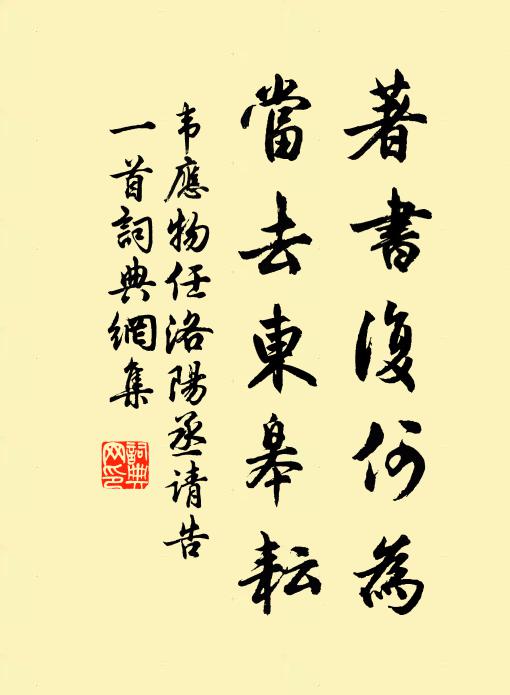 著書復何為
當去東皋耘
韦應物任洛陽丞请告
一首詞典網集
詞典
网印